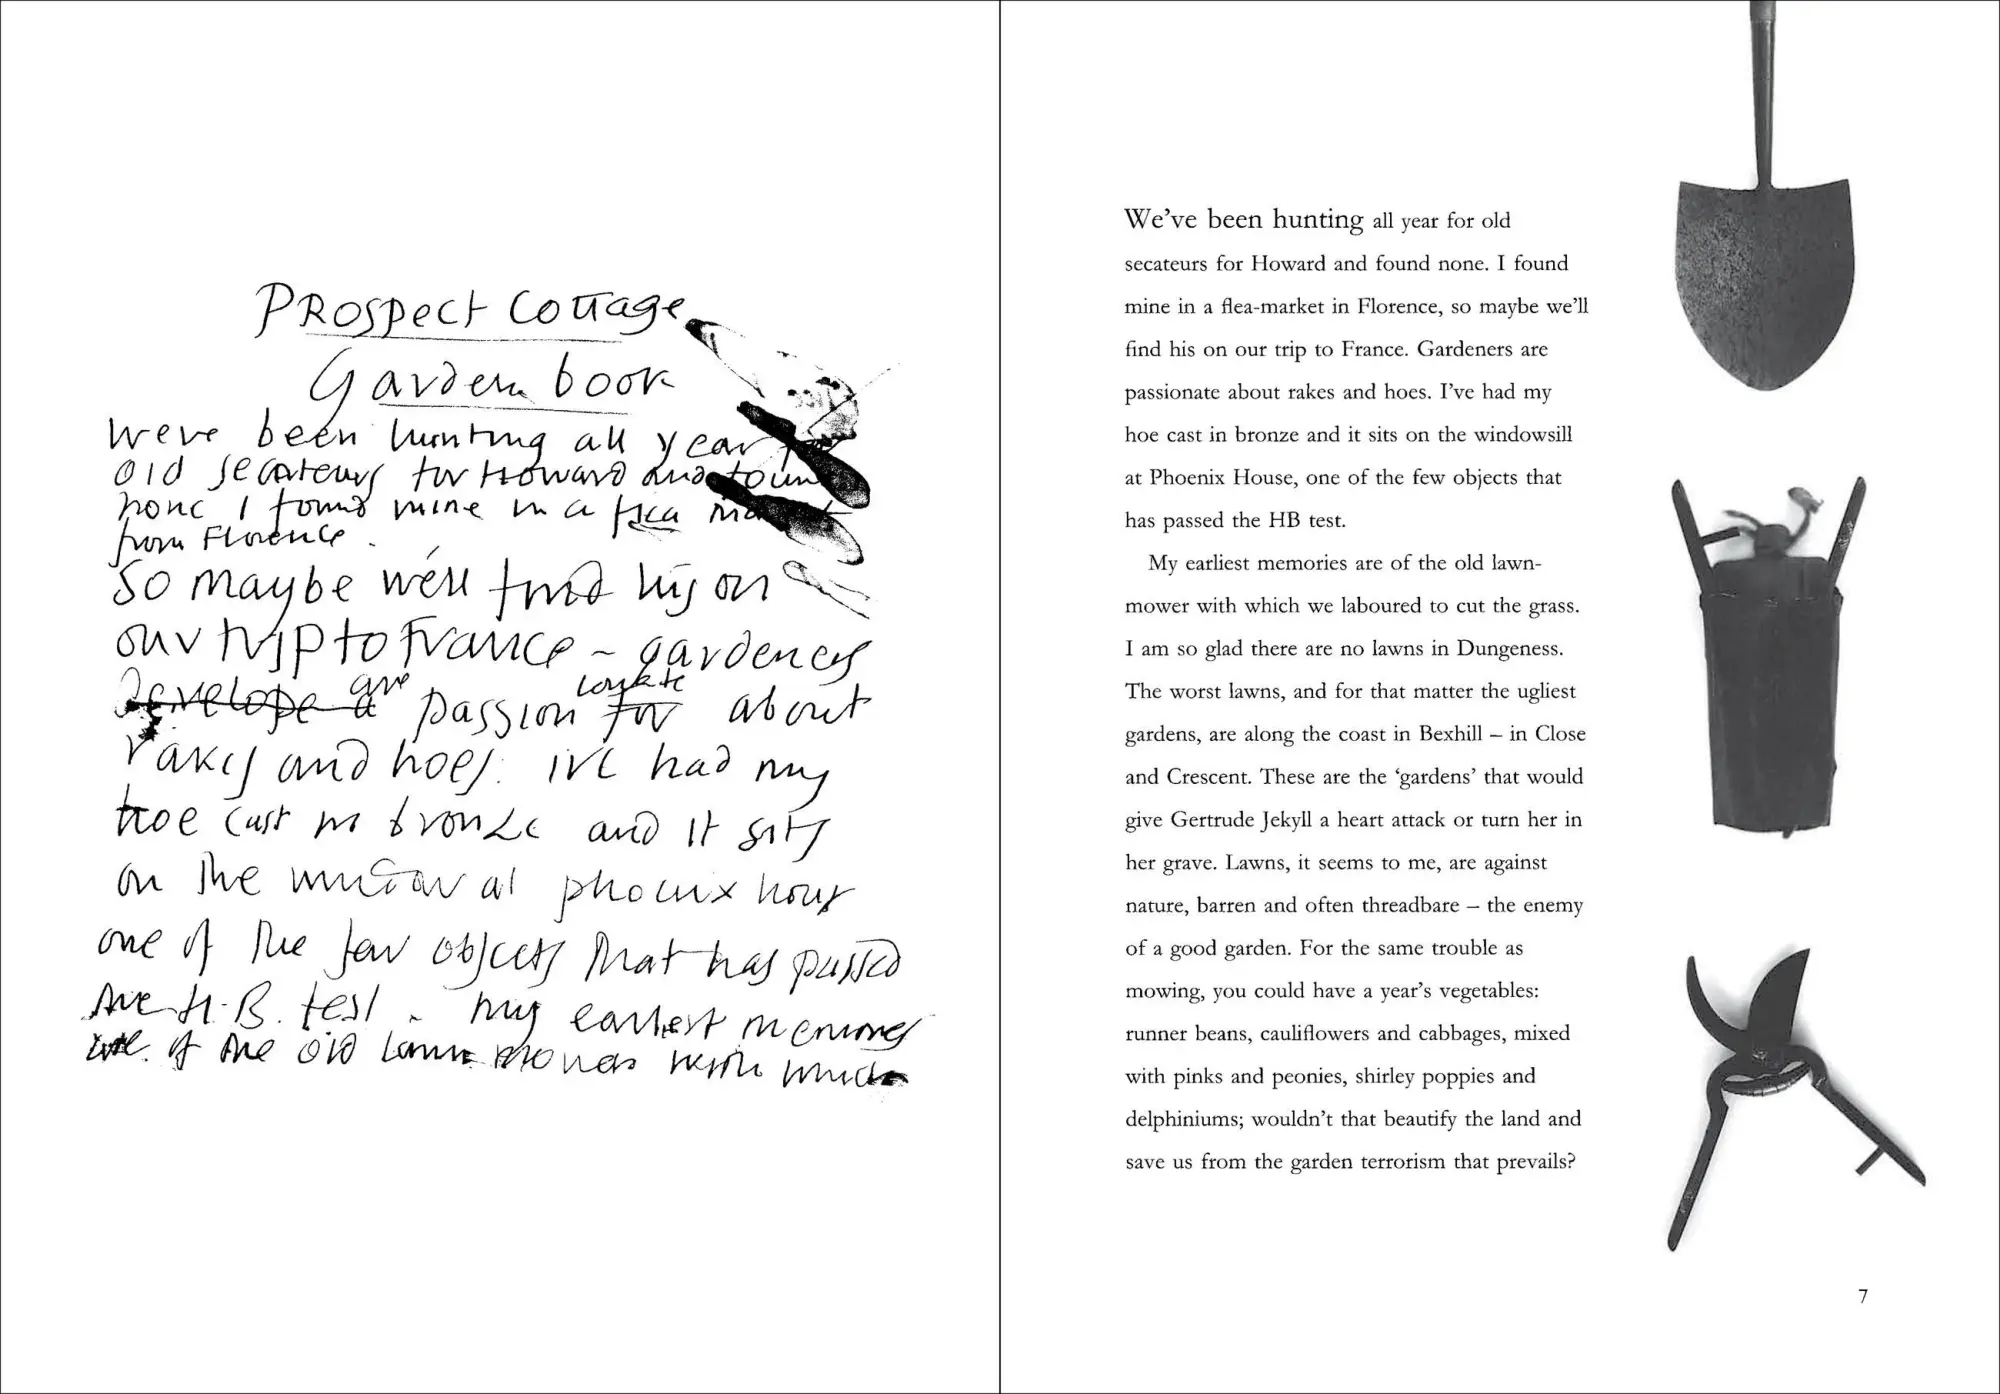 Prospect Cottage
Garden book
Weve been hunting all year for
old secateurs for Howard and found
none I found mine in a flea market
from Florence.
So maybe we'll find his on
our trip to France ~ gardeners
Develope a are passionate for about
rakes and hoes. ive had my
hoe cast in bronze and it sits
on the window at phoenix house
one of the few objects that has passed
the H.B. test. my earliest memories
are of the old lawn mower with which
We've been hunting all year for old
secateurs for Howard and found none. I found
mine in a flea-market in Florence, so maybe we'll
find his on our trip to France. Gardeners are
passionate about rakes and hoes. I've had my
hoe cast in bronze and it sits on the windowsill
at Phoenix House, one of the few objects that
has passed the HB test.
My earliest memories are of the old lawn-
mower with which we laboured to cut the grass.
I am so glad there are no lawns in Dungeness.
The worst lawns, and for that matter the ugliest
gardens, are along the coast in Bexhill – in Close
and Crescent. These are the ‘gardens’ that would
give Gertrude Jekyll a heart attack or turn her in
her grave. Lawns, it seems to me, are against
nature, barren and often threadbare – the enemy
of a good garden. For the same trouble as
mowing, you could have a year's vegetables:
runner beans, cauliflowers and cabbages, mixed
with pinks and peonies, shirley poppies and
delphiniums; wouldn't that beautify the land and
save us from the garden terrorism that prevails?
7